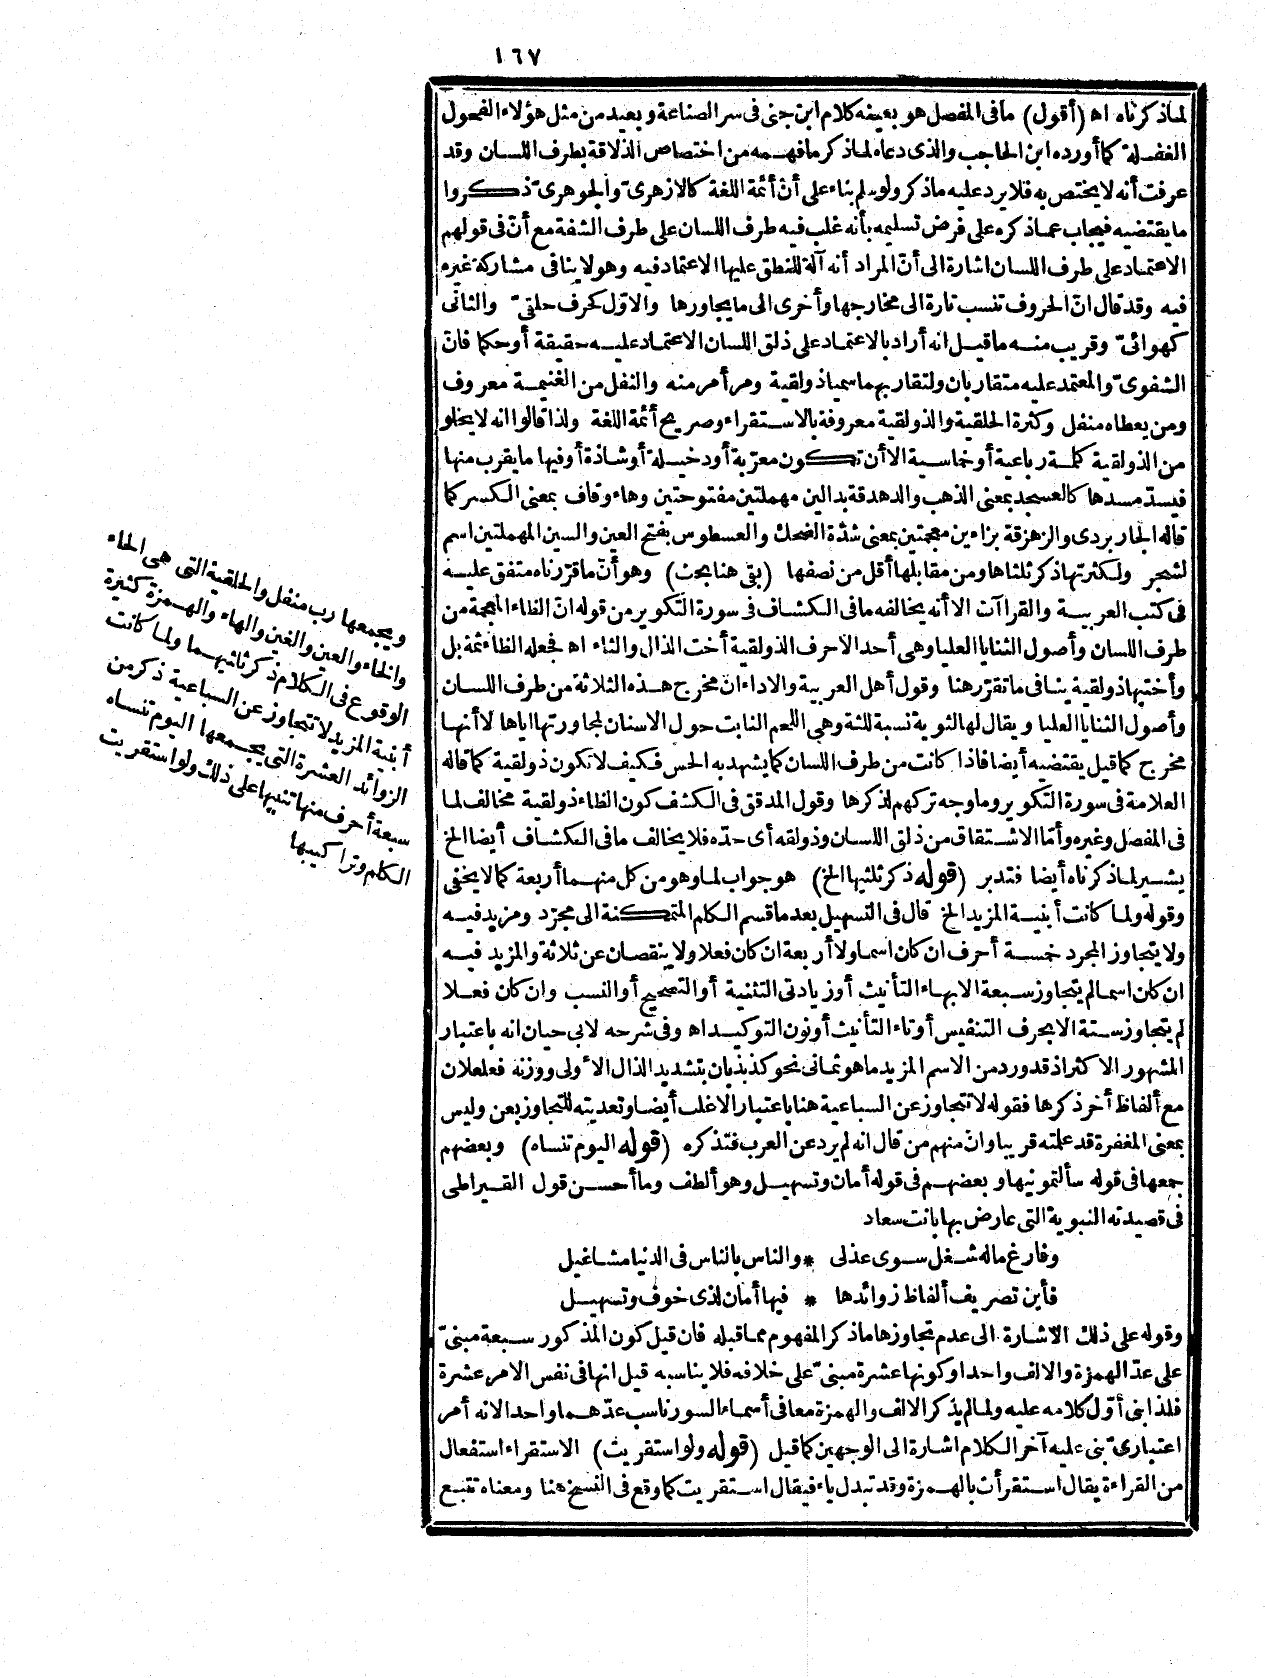 ١٦٧
لما ذكرناه اه (أقول) ما في المفصل هو بعينه كلام ابن جني في سر الصناعة وبعيد من مثل هؤلاء الفحول
الغفلة كما أورده ابن الحاجب والذي دعاه لما ذكر ما فهمه من اختصاص الذلاقة بطرف اللسان وقد
عرفت أنه لا يختص به فلا يرد عليه ما ذكر ولو سلم بناء على أنّ أئمة اللغة كالازهريّ والجوهريّ ذكروا
ما يقتضيه فيجاب عما ذكره على فرض تسليمه بأنه غلب فيه طرف اللسان على طرف الشفة مع أنّ في قولهم
الاعتماد على طرف اللسان اشارة الى أنّ المراد أنه آلة للنطق عليها الاعتماد فيه وهو لا ينافي مشاركة غيره
فيه وقد قال انّ الحروف تنسب تارة الى مخارجها وأخرى الى ما يجاورها والاوّل كحرف حلقيّ والثاني
كهوائيّ وقريب منه ما قيل انه أراد بالاعتماد على ذلق اللسان الاعتماد عليه حقيقة أو حكما فانّ
الشفويّ والمعتمد عليه متقاربان ولتقاربهما سميا ذولقية ومر أمر منه والنفل من الغنيمة معروف
ومن يعطاه منفل وكثرة الحلقية والذولقية معروفة بالاستقراء وصريح أئمة اللغة ولذا قالوا انه لا يخلو
من الذولقية كلمة رباعية أو خماسية الا أن تكون معرّبة أو دخيلة أو شاذة أو فيها ما يقرب منها
فيسدّ مسدها كالعسجد بمعنى الذهب والدهدقة بدالين مهملتين مفتوحتين وهاء وقاف بمعنى الكسر كما
قاله الجاربردى والزهزقة بزاءين معجمتين بمعنى شدّة الضحك والعسطوس بفتح العين والسين المهملتين اسم
لشجر ولكثرتها ذكر ثلثاها ومن مقابلها أقل من نصفها (بقي هنا بحث) وهو أنّ ما قرّرناه متفق عليه
في كتب العربية والقرا آت الا أنه يخالفه ما في الكشاف في سورة التكوير من قوله انّ الظاء المعجمة من
طرف اللسان وأصول الثنايا العليا وهي أحد الاحرف الذولقية أخت الذال والثاء اه فجعله الظاء ثمة بل
وأختيها ذولقية ينافي ما تقرّر هنا وقول أهل العربية والاداء انّ مخرج هذه الثلاثة من طرف اللسان
وأصول الثنايا العليا ويقال لها لثوية نسبة للثة وهي اللحم النابت حول الاسنان لمجاورتها اياها لا أنها
مخرج كما قيل يقتضيه أيضا فاذا كانت من طرف اللسان كما يشهد به الحس فكيف لا تكون ذولقية كما قاله
العلامة في سورة التكوير وما وجه تركهم لذكرها وقول المدقق في الكشف كون الظاء ذولقية مخالف لما
في المفصل وغيره وأمّا الاشتقاق من ذلق اللسان وذولقه أى حدّه فلا يخالف ما في الكشاف أيضا الخ
يشير لما ذكرناه أيضا فتدبر (قوله ذكر ثلثيها الخ) هو جواب لما وهو من كل منهما أربعة كما لا يخفى
وقوله ولما كانت أبنية المزيد الخ قال في التسهيل بعد ما قسم الكلم المتمكنة الى مجرّد ومزيد فيه
ولا يتجاوز المجرد خمسة أحرف ان كان اسما ولا أربعة ان كان فعلا ولا ينقصان عن ثلاثة والمزيد فيه
ان كان اسما لم يتجاوز سبعة الا بهاء التأنيث أو زيادتى التثنية أو التصحيح أو النسب وان كان فعلا
لم يتجاوز ستة الا بحرف التنفيس أو تاء التأنيث أو نون التوكيد اه وفي شرحه لابى حيان انه باعتبار
المشهور الاكثر اذ قد ورد من الاسم المزيد ما هو ثمانى نحو كذبذبان بتشديد الذال الأولى ووزنه فعلعلان
مع ألفاظ أخر ذكرها فقوله لا تتجاوز عن السباعية هنا باعتبار الاغلب أيضا وتعديته للتجاوز بعن وليس
بمعنى المغفرة قد علمته قريبا وانّ منهم من قال انه لم يرد عن العرب فتذكره (قوله اليوم تنساه) وبعضهم
جمعها في قوله سألتمونيها وبعضهم في قوله أمان وتسهيل وهو ألطف وما أحسن قول القيراطى
في قصيدته النبوية التي عارض بها بانت سعاد
وفارغ ماله شغل سوى عذلى * والناس بالناس في الدنيا مشاغيل
فأين تصريف ألفاظ زوائدها * فيها أمان لذى خوف وتسهيل
وقوله على ذلك الاشارة الى عدم تجاوزها ما ذكر المفهوم مما قبله فان قيل كون المذكور سبعة مبنيّ
على عدّ الهمزة والالف واحدا وكونها عشرة مبنيّ على خلافه فلا يناسبه قيل انها في نفس الامر عشرة
فلذا بنى أوّل كلامه عليه ولما لم يذكر الالف والهمزة معا في أسماء السور ناسب عدّهما واحدا لانه أمر
اعتباريّ بنى عليه آخر الكلام اشارة الى الوجهين كما قيل (قوله ولو استقريت) الاستقراء استفعال
من القراءة يقال استقرأت بالهمزة وقد تبدل ياء فيقال استقريت كما وقع في النسخ هنا ومعناه تتبع
ويجمعها رب منفل والحلقية التي هي الحاء
والخاء والعين والغين والهاء والهمزة كثيرة
الوقوع في الكلام ذكر ثلثيهما ولما كانت
أبنية المزيد لا تتجاوز عن السباعية ذكر من
الزوائد العشرة التي يجمعها اليوم تنساه
سبعة أحرف منها تنبيها على ذلك ولو استقريت
الكلم وتراكيبها